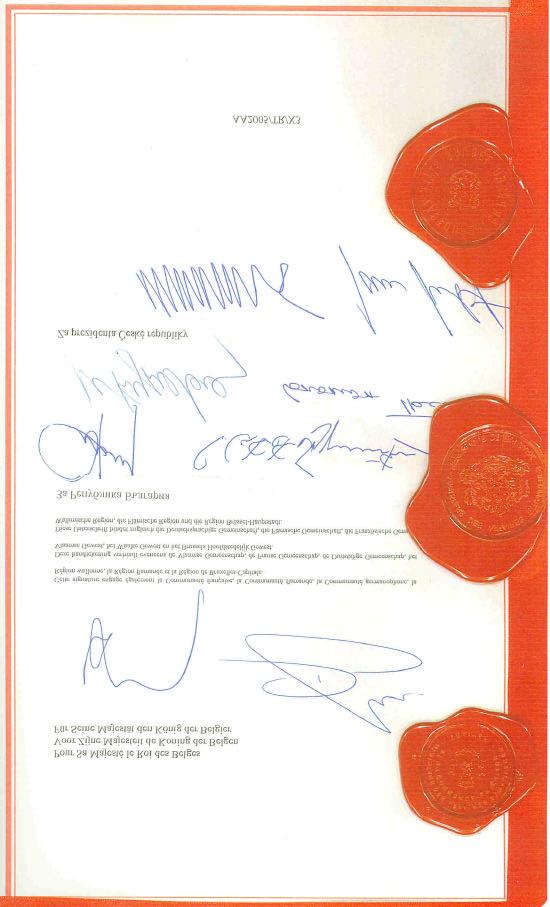 Pour Sa Majesté le Roi des Belges
Voor Zijne Majesteit de Koning der Belgen
Für Seine Majestät den König der Belgier
Cette signature engage également la Communauté française, la Communauté flamande, la Communauté germanophone, la
Région wallonne, la Région flamande et la Région de Bruxelles-Capitale.
Deze handtekening verbindt eveneens de Vlaamse Gemeenschap, de Franse Gemeenschap, de Duitstalige Gemeenschap, het
Vlaamse Gewest, het Waalse Gewest en het Brussels Hoofdstedelijk Gewest.
Diese Unterschrift bindet zugleich die Deutschsprachige Gemeinschaft, die Flämische Gemeinschaft, die Französische Gem
Wallonische Region, die Flämische Region und die Region Brüssel-Hauptstadt.
За Република България
Za prezidenta České republiky
AA2005/TR/X3